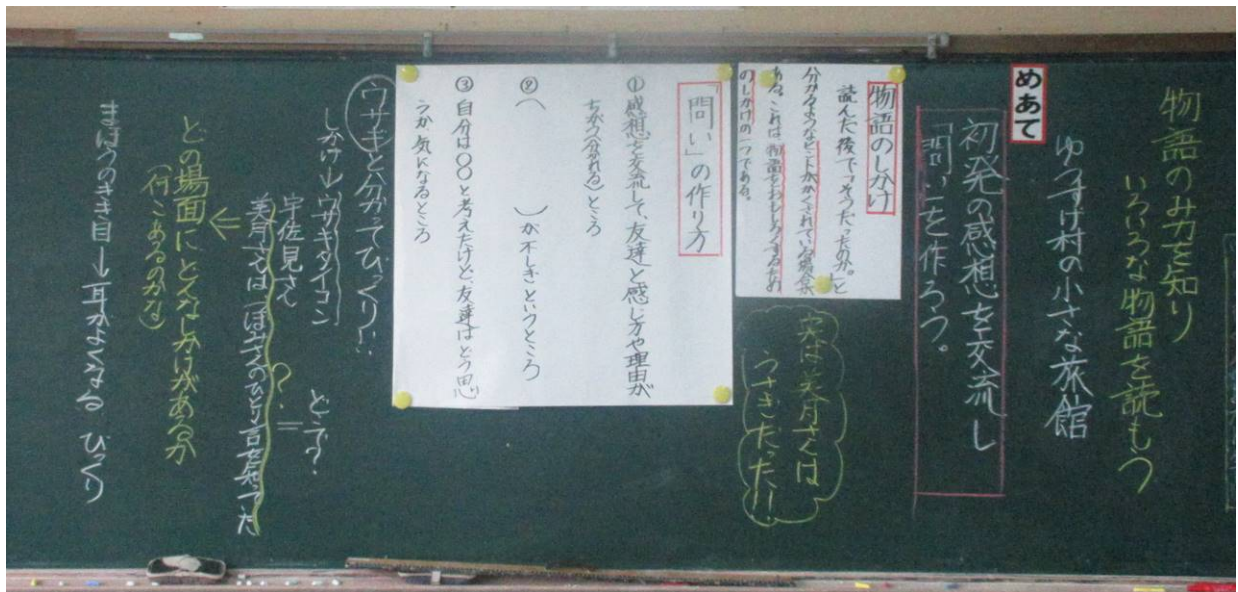 物語のみ力を知り
いろいろな物語を読もう
ゆうすげ村の小さな旅館
めあて
初発の感想を交流し
「問い」を作ろう。
物語のしかけ
読んだ後で「そうだったのか。」と
分かるようなヒントがかくされている場合が
ある。これは、物語をおもしろくするため
のしかけの一つである。
実は美月さんは
うさぎだった!!
「問い」の作り方
①感想を交流して、友達と感じ方や理由が
ちがう(分かれる)ところ
②( )が不しぎというところ
③自分は〇〇と考えたけど、友達はどう思
うか気になるところ
ウサギと分かってびっくり!!
しかけ→ウサギダイコン どこで?
宇佐見さん ?
美月さんは つぼみさんのひとり言を知ってた
どの場面にどんなしかけがあるか
(何こあるのかな)
まほうのきき目→耳がよくなる びっくり